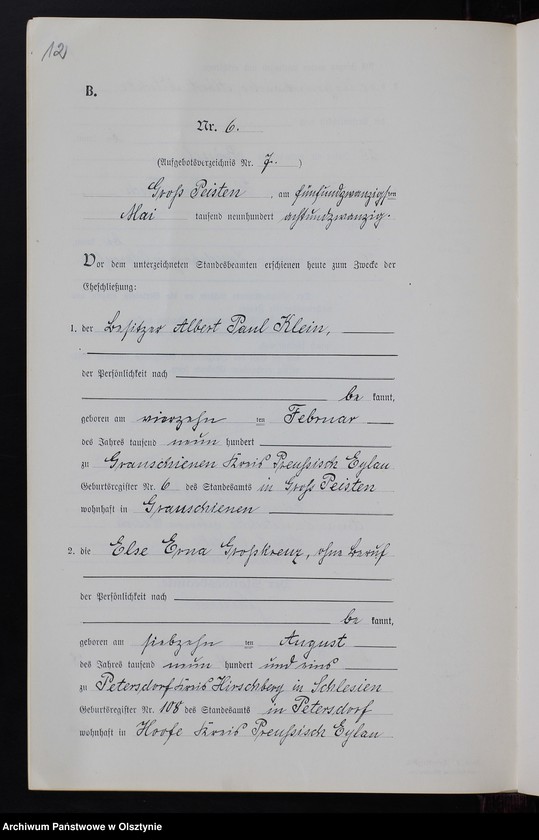 12
B.
Nr. 6.
(Aufgebotsverzeichnis Nr. 7. )
Groß Peisten, am fünfundzwanzigsten
Mai tausend neunhundert achtundzwanzig.
Vor dem unterzeichneten Standesbeamten erschienen heute zum Zwecke der
Eheschließung:
1. der Besitzer Albert Paul Klein,
der Persönlichkeit nach
be kannt,
geboren am vierzehn ten Februar
des Jahres tausend neun hundert
zu Grauschienen Kreis Preußisch Eylau
Geburtsregister Nr. 6 des Standesamts in Groß Peisten
wohnhaft in Grauschienen
2. die Else Erna Großkreuz, ohne Beruf
der Persönlichkeit nach
be kannt,
geboren am siebzehn ten August
des Jahres tausend neun hundert und eins
zu Petersdorf Kreis Hirschberg in Schlesien
Geburtsregister Nr. 108 des Standesamts in Petersdorf
wohnhaft in Hoofe Kreis Preußisch Eylau
Archiwum Państwowe w Olsztynie